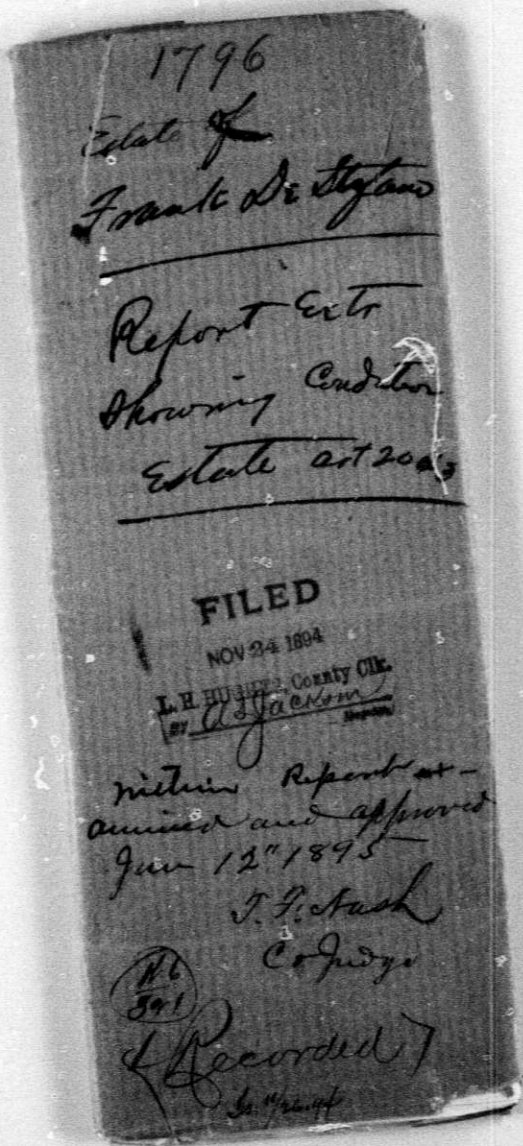 1796
Estate of
Frank De Stefano
Report Extr
Showing Condition
Estate art 20
FILED
NOV 24 1894
L. H. HUGHES, County Clk.
BY A S Jackson Deputy
Within Report ex-
amined and approved
Jan 12" 1895
T. F. Nash
Co Judge
391
Recorded